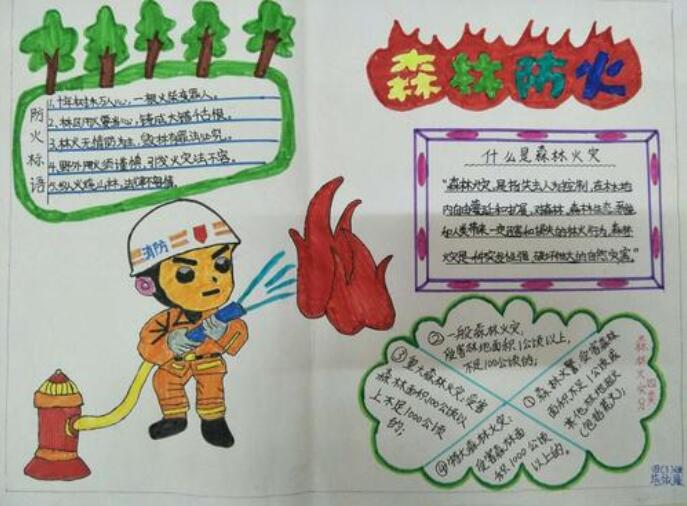 森林防火
防火标语
1.十年树木万人心,一把火柴变罪人。
2.林区用火要当心,铸成大错千古恨。
3.林火无情防为主,毁林有罪法必究。
4.野外用火须谨慎,引发火灾法不容。
消防
什么是森林火灾
“森林火灾,是指失去人为控制,在林地
内自由蔓延和扩展,对森林、森林生态系统
和人类带来一定危害和损失的林火行为。森林
火灾是一种突发性强、破坏性大的自然灾害。”
森林火灾
四类
①森林火警,受害森林
面积不足1公顷或
其他林地起火
(包括荒火);
②一般森林火灾,
受害林地面积1公顷以上,
不足100公顷的;
③重大森林火灾,受害
森林面积100公顷以
上不足1000公顷
的;
④特大森林火灾,
受害森林面
积1000公顷
以上的。